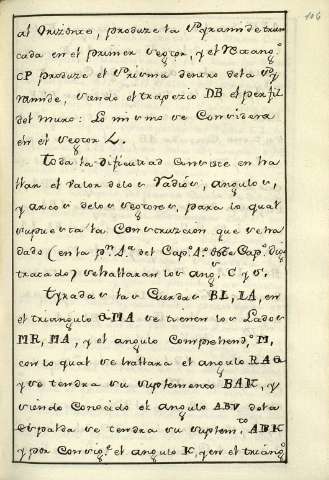 106
al Orizonte, produze la Pyramide trun
cada en el primer Sector, y el Rectang.º
CP produze el Prisma dentro dela Py
ramide, siendo el trapezio DB el perfil
del muro: Lo mismo se Considera
en el Sector L.
Toda la dificultad Consiste en ha
llar el valor delos Radios, angulos,
y arcos delos Sectores, para lo qual
supuesta la Construzcion que se ha
dado (en la p.n 1.a del Cap.º 1.º Cap.º
tracado) se hallaran los ang.s C y
Tyradas las Cuerdas BL, LA, en
el triangulo QMA se tienen los Lados
MR, MA, y el angulo Comprehend.º M,
con lo qual se hallara el angulo RAQ
y se tendra su suplemento BAK, y
siendo Conocido el angulo ABV dela
Espalda se tendra su suplem.to ABK
y por Consig.e el angulo K, y en el triang.º